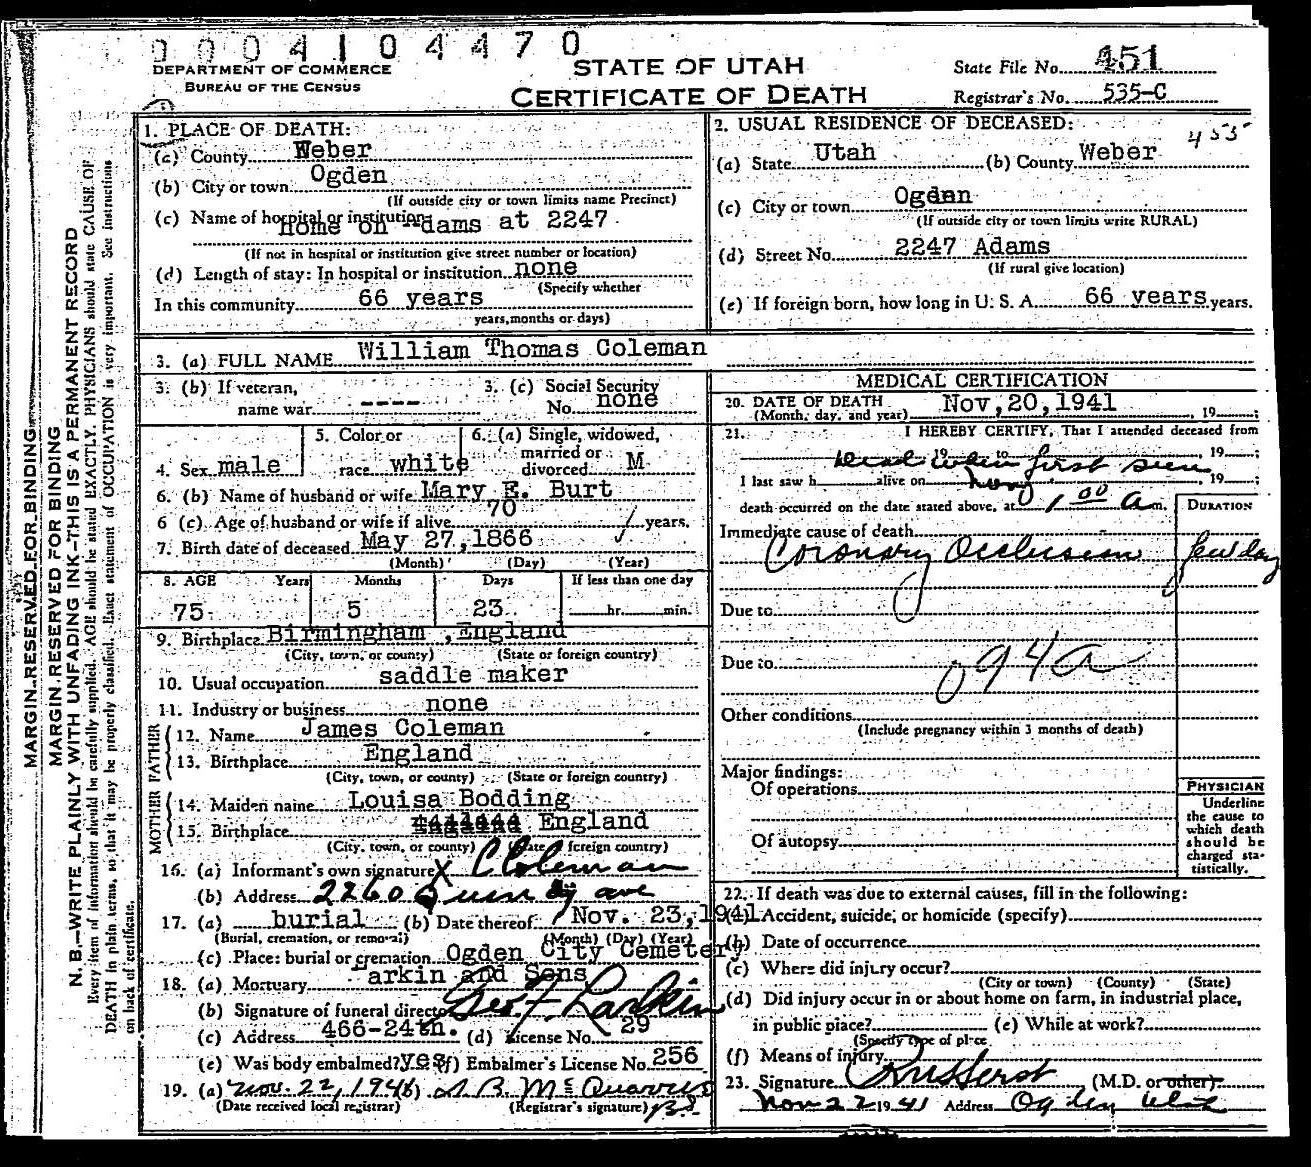 0004104470
DEPARTMENT OF COMMERCE
BUREAU OF THE CENSUS
STATE OF UTAH
CERTIFICATE OF DEATH
State File No. 451
Registrar's No. 535-C
1. PLACE OF DEATH:
(a) County Weber
(b) City or town Ogden
(If outside city or town limits name Precinct)
(c) Name of hospital or institution
home on Adams at 2247
(If not in hospital or institution give street number or location)
(d) Length of stay: In hospital or institution none
(Specify whether
In this community 66 years
years, months or days)
2. USUAL RESIDENCE OF DECEASED: 455
(a) State Utah (b) County Weber
(c) City or town Ogden
(If outside city or town limits write RURAL)
(d) Street No. 2247 Adams
(If rural give location)
(e) If foreign born, how long in U. S. A. 66 years years.
3. (a) FULL NAME William Thomas Coleman
3. (b) If veteran,
name war ----
3. (c) Social Security
No. none
4. Sex male
5. Color or
race white
6. (a) Single, widowed,
married or
divorced M
6. (b) Name of husband or wife Mary E. Burt
6 (c). Age of husband or wife if alive 70 years.
7. Birth date of deceased May 27, 1866
(Month) (Day) (Year)
8. AGE Years Months Days If less than one day
75 5 23 hr. min.
9. Birthplace Birmingham, England
(City, town, or county) (State or foreign country)
10. Usual occupation saddle maker
11. Industry or business none
FATHER
12. Name James Coleman
13. Birthplace England
(City, town, or county) (State or foreign country)
MOTHER
14. Maiden name Louisa Bodding
15. Birthplace England
(City, town, or county) (State foreign country)
16. (a) Informant's own signature X C Coleman
(b) Address 2260 Quincy ave
17. (a) burial (b) Date thereof Nov. 23, 1941
(Burial, cremation, or removal) (Month) (Day) (Year)
(c) Place: burial or cremation Ogden City Cemetery
18. (a) Mortuary Larkin and Sons
(b) Signature of funeral director Geo. F. Larkin
(c) Address 466-24th. (d) License No. 29
(e) Was body embalmed? yes (f) Embalmer's License No. 256
19. (a) Nov. 22, 1941 (b)
(Date received local registrar) (Registrar's signature)
MEDICAL CERTIFICATION
20. DATE OF DEATH Nov, 20, 1941
(Month, day, and year) , 19 ;
21. I HEREBY CERTIFY, That I attended deceased from
, 19 to , 19 ;
Dead when first seen
I last saw h alive on , 19 ;
death occurred on the date stated above, at 1 00 A m.
DURATION
Immediate cause of death
Coronary Occlusion few days
Due to
Due to 094a
Other conditions
(Include pregnancy within 3 months of death)
Major findings:
Of operations
Of autopsy
PHYSICIAN
Underline
the cause to
which death
should be
charged sta-
tistically.
22. If death was due to external causes, fill in the following:
(a) Accident, suicide, or homicide (specify)
(b) Date of occurrence
(c) Where did injury occur?
(City or town) (County) (State)
(d) Did injury occur in or about home on farm, in industrial place,
in public place? (e) While at work?
(Specify type of place
(f) Means of injury
23. Signature (M.D. or other).
Nov 22 1941 Address Ogden Utah
MARGIN RESERVED FOR BINDING
MARGIN RESERVED FOR BINDING
N. B.—WRITE PLAINLY WITH UNFADING INK—THIS IS A PERMANENT RECORD
Every item of information should be carefully supplied. AGE should be stated EXACTLY. PHYSICIANS should state CAUSE OF
DEATH in plain terms, so that it may be properly classified. Exact statement of OCCUPATION is very important. See instructions
on back of certificate.